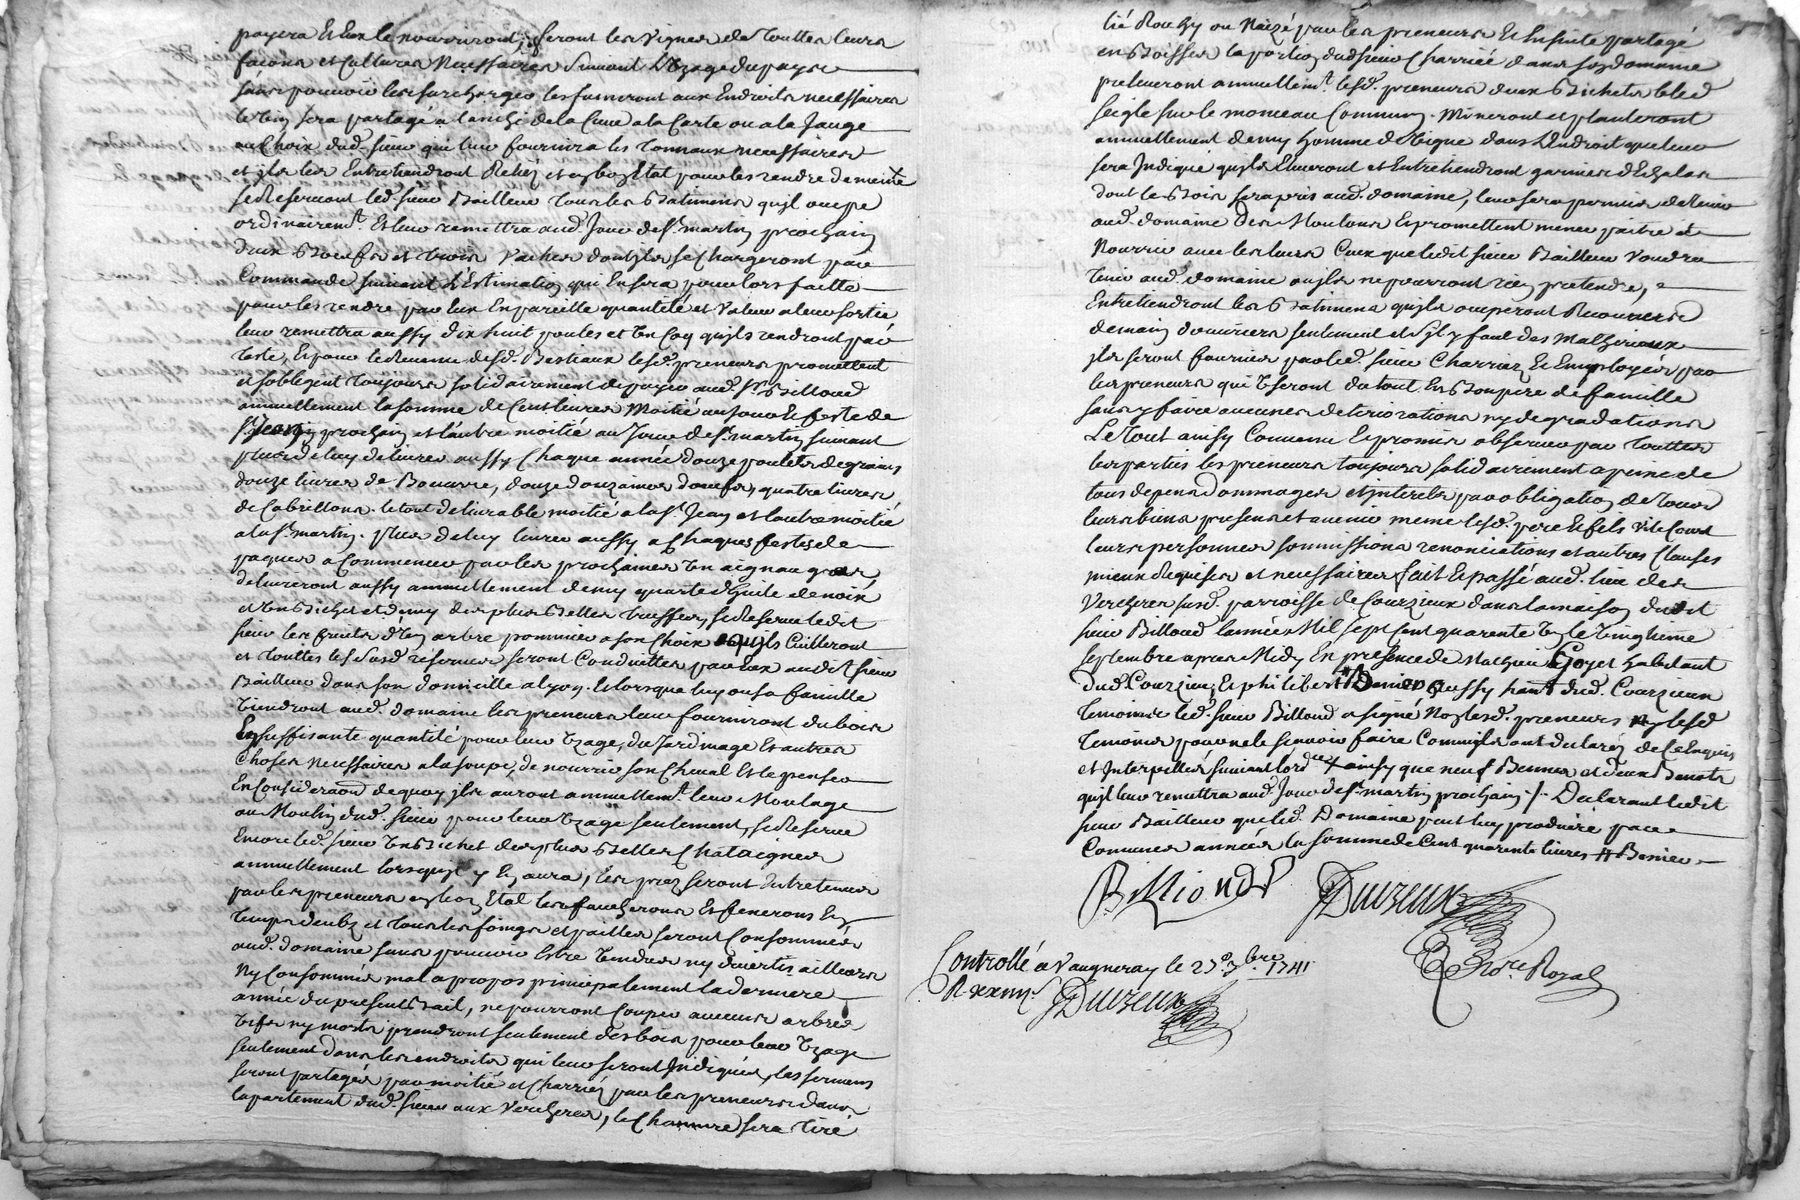 payera Et Eux le nourriront, feront les vignes de Touttes leurs
facons et Cultures Necessaires suivant L'Uzage du pays
sans pouvoir les surcharger les fumeront aux Endroits necessaires
le vin sera partagé a l'anche de la Cuve a la Carte ou a la Jauge
au Choix dud. sieur qui leur fournira les Tonnaux necessaires
et ils les Entretiendront Reliés et en bon Etat pour les rendre de meme
se Reservant led. sieur Bailleur Tous les Batimens qu'il occupe
ordinairemt. Et leur remettra aud. Jour de St. martin prochain
deux Boeufs et trois Vaches dont ils se Chargeront par
Commande suivant L'Estimation qui En sera pour lors faitte
pour les rendre par Eux En pareille quantité et Valeur a leur sortie
leur remettra aussy dix huit poules et Un Coq qu'ils rendront par
Teste, Et pour le Revenu desd. Bestiaux lesd. preneurs promettent
et s'obligent Toujours solidairement de payer aud. Sr. Billioud
annuellement la somme de Cent livres Moitié au jour Et feste de
St. Jean prochain et l'autre moitié au Jour de St. martin suivant
plus de luy delivrer aussy Chaque année douze poulets de grains
douze livres de Beurre, douze douzaines d'oeufs, quatre livres
de Cabrillons. le tout delivrable moitié a la St. Jean et l'autre moitié
a la St. martin. plus de luy livrer aussy a Chaques festes de
paques a Commencer par les prochaines Un aigneau gras
delivreront aussy annuellement demy quarte d'huile de noix
et Un Bichet et demy des plus Belles Truffes, se Reserve ledit
sieur les fruits d'Un arbre pommier a son Choix qu'ils Cuilleront
et Touttes les susd. reserves seront Conduittes par Eux audit sieur
Bailleur dans son domicille a Lyon. Et lorsque luy ou sa famille
Viendront aud. domaine les preneurs leur fourniront du bois
En suffisante quantité pour leur Uzage, du Jardinage Et autres
Choses Necessaires a la soupe, de nourrir son Cheval Et le penser
En Consideraon de quoy ils auront annuellemt. leur Moulage
au Moulin dud. sieur pour leur Uzage seulement, se Reserve
Encore led. sieur Un Bichet des plus Belles Chataignes
annuellement lorsqu'il y En aura, les prez seront Entretenus
par les preneurs en bon Etat les faucheront Et feneront En
Temps deubz et Tous les foings et pailles seront Consommés
aud. domaine sans pouvoir Estre Vendus ny divertis ailleurs
Ny Consommés mal a propos principalement la derniere
année du present Bail, ne pourront Couper aucuns arbres
Vifs ny morts prendront seulement des bois pour leur Uzage
seulement dans les endroits qui leur seront Indiqués, les sermens
seront partagés par moitié et Charriés par les preneurs dans
l'apartement dud. sieur aux Vercheres, le Chanvre sera Tiré
lié Rouhy ou Naizé par les preneurs Et Ensuite partagé
la portion dud sieur Charriée dans son domaine
preleveront annuellemt. lesd. preneurs deux Bichets bled
seigle sur le monceau Commun. Mineront et planteront
annuellement demy homme de Vigne dans L'Endroit que leur
sera Indiqué qu'ils Eleveront et Entretiendront garnies d'Echalas
dont le Bois sera pris aud. domaine, leur sera permis de Tenir
aud. domaine des Moutons Et promettent mener paitre et
Nourrir avec les leurs Ceux que ledit sieur Bailleur Voudra
Tenir aud. domaine ou ils ne pourront rien pretendre,
Entretiendront les Batimens qu'ils occuperont Recouverts
de main d'ouvriers seulement et s'il y faut des Matheriaux
ils seront fournis par led. sieur Charriez Et Employés par
les preneurs qui Useront du tout En Bon pere de famille
sans y faire aucunes deteriorations ny degradations
Le Tout ainsy Convenu Et promis observer par Touttes
les parties les preneurs toujours solidairement a peine de
tous depens dommages et interets par obligation de Tous
leurs biens presens et avenir meme lesd. pere Et fils
leurs personnes sommissions renonciations et autres Clauses
mieux Requises et necessaires fait Et passé aud. lieu des
Vercheres susd. parroisse de Courzieux dans la maison dudit
sieur Billioud l'année Mil sept Cent quarente Un le Vinghieme
septembre apres Midy En presence de Mathieu Goyet habitant
dud. Courzieu, Et philibert aussy hant dud. Courzieux
Temoins led. sieur Billioud a signé Non lesd. preneurs ny lesd
Temoins pour ne le sçavoir faire Comm'ils ont declarés de Ce Enquis
et Interpellés suivant l'ordce + ainsy que neuf Bennes et deux Benots
qu'il leur remettra aud. Jour de St. martin prochain /. Declarant ledit
sieur Bailleur que led. Domaine peut luy produire par
Comunes années la somme de Cent quarente livres
Billioud Duvzeux
Nore. Royal
Controllé a Vaugneray le 27e. 7bre 1741
Duvzeux